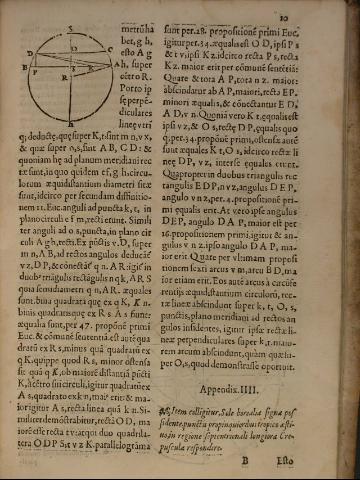 10
S
D
O
C
B
P
K
Ah
R
metrū ha
bet, g h,
esto A g
A h, super
cētro R.
Porro ip
sę perpē-
diculares
lineę vtri
q; deductę, quę super K, t, sint m n, v x,
& quæ super o, s, sint A B, C D : &
quoniam hę ad planum meridiani rec
tæ sunt, in quo quidem ef, g h, circu-
lorum æquidistantium diametri sitæ
sunt, idcirco per secundam diffinitio-
nem 11. Euc. anguli ad puncta k, t, in
plano circuli e f m, recti erunt. Simili
ter anguli ad o, s, puncta, in plano cir
culi A g h, recti. Ex pūctis v. D, super
m n, A B, ad rectos angulos deducāt̄
v z, D P, & cōnectāt̄ q n. A R: igit̄ in
duob⁹ triāgulis rectāgulis n q k, A R S
quia semidiametri q n, A R. æquales
sunt, bina quadrata quę ex q K, K n.
binis quadratisque ex R s A s simul
æqualia sunt, per 47. propōnē primi
Euc. & cōmunē sententiā est autē qua
dratū ex R s, minus quā quadratū ex
q K, quippe quod R s, minor ostensa
sit quā q K, ob maiorē distantiā pūcti
K, à cētro sui circuli, igitur quadratū ex
A s, quadrato ex k n, mai⁹ erit: & ma-
ior igitur A s, recta linea quā k n. Si-
militer demōstrabitur, recta O D, ma
iorē esse recta t v: at quot duo quadrila-
tera O D P S, t v z K. parallelograma
sunt per. 28. propositionē primi Euc.
igitur per .34. æqualis est O D, ipsi P s
& t v, ipsi K z. idcirco recta P s, recta
K z. maior erit per cōmunē sētentiā:
Quare & tota A P, tota n z. maior:
abscindatur ab A P, maiori, recta E P.
minori æqualis, & cōnectantur E D.
A D, v n. Quonia vero K t. equalis est
ipsi v z, & O s, rectę D P, equalis quo
q; per. 34. propōnē primi, ostensæ autē
sunt æquales K t, O s, idcirco rectæ li
neę D P, v z, interse equales erunt.
Quapropter in duobus triangulis rec
tangulis E D P, n v z, angulus D E P.
angulo v n z, per .4. propositionē pri-
mi equalis erit. At vero ipse angulus
D E P, angulo D A P, maior est per
16. propositionem primi, igitur & an-
gulus v n z. ipso angulo D A P, ma-
ior erit. Quare per vltimam proposi
tionem sexti arcus v m, arcu B D, ma
ior etiam erit. Eos autē arcus à circūfe
rentijs æquidistantium circulorū, rec-
tæ lineæ abscindunt super k, t, O, s,
punctis, plano meridiani ad rectos an
gulos insidentes, igitur ipsæ rectæ li-
neæ perpendiculares super k, t. maio-
rem arcum abscindunt, quàm quæ su-
per O, s, quod demonstrasse oportuit.
Appendix. IIII.
Item colligitur, Sole borealia signa pos
sidente, punctis propinquioribus tropico æsti
uo, in regione septentrionali longiora Cre
puscula respondere.
B
Esto